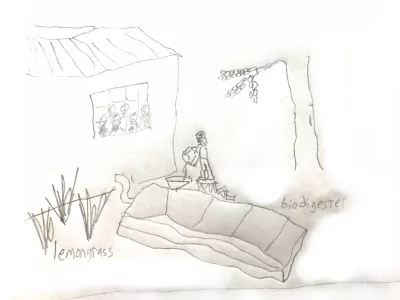 biodigester
lemongrass